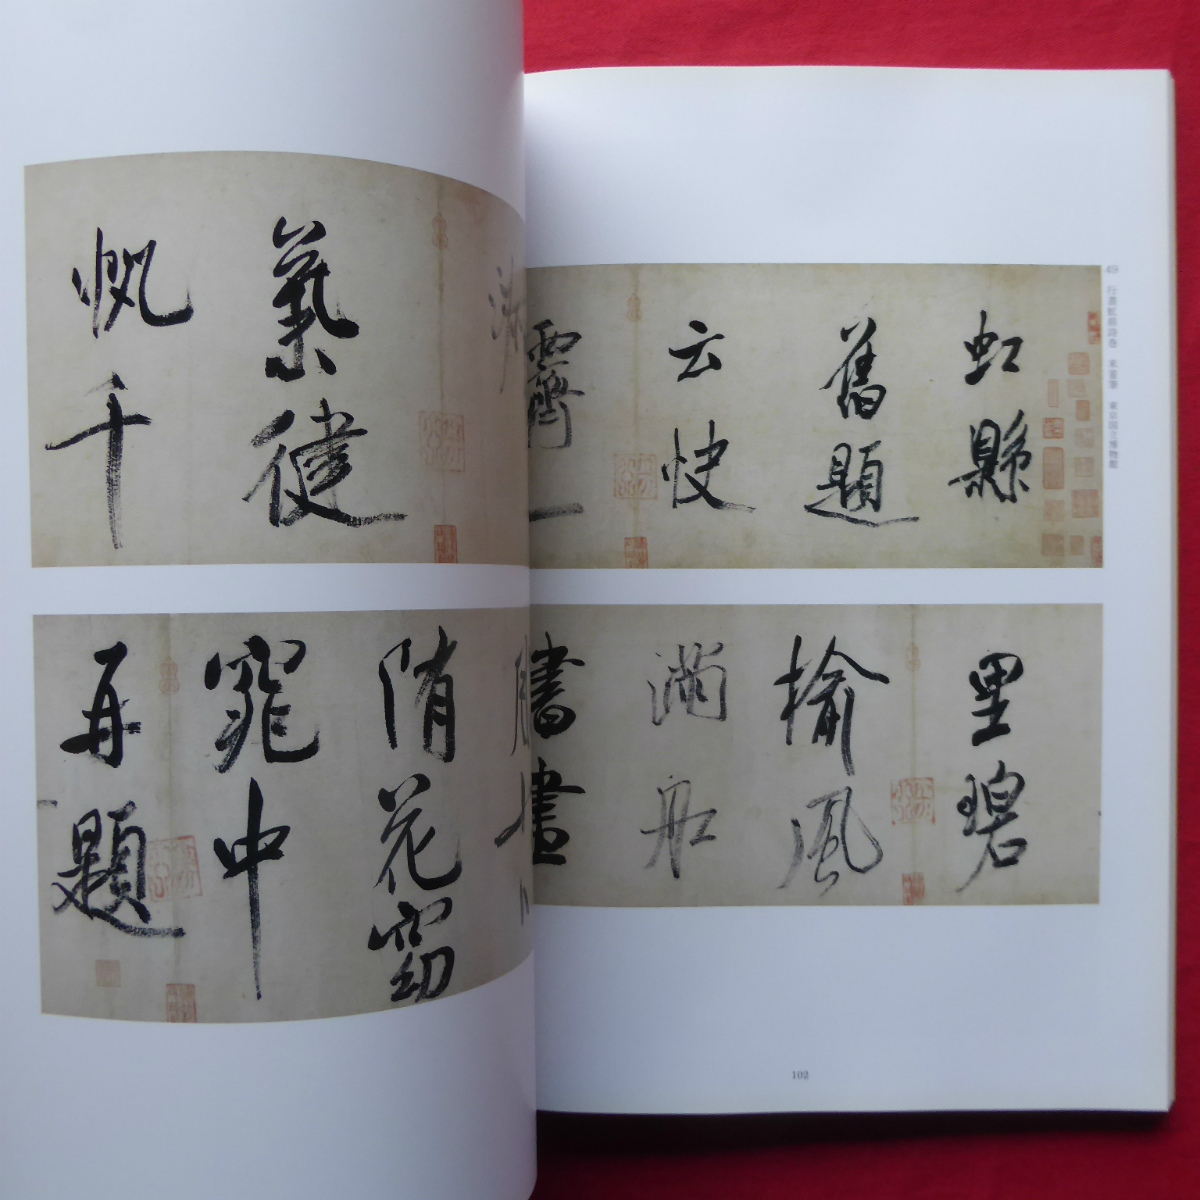 行書虹県詩巻 米芾筆 東京国立博物館
虹縣
舊題
云快
霽一
淑
氣健
帆千
里碧
榆風
滿舟
書畫
隋花窈
窕中
再題
102